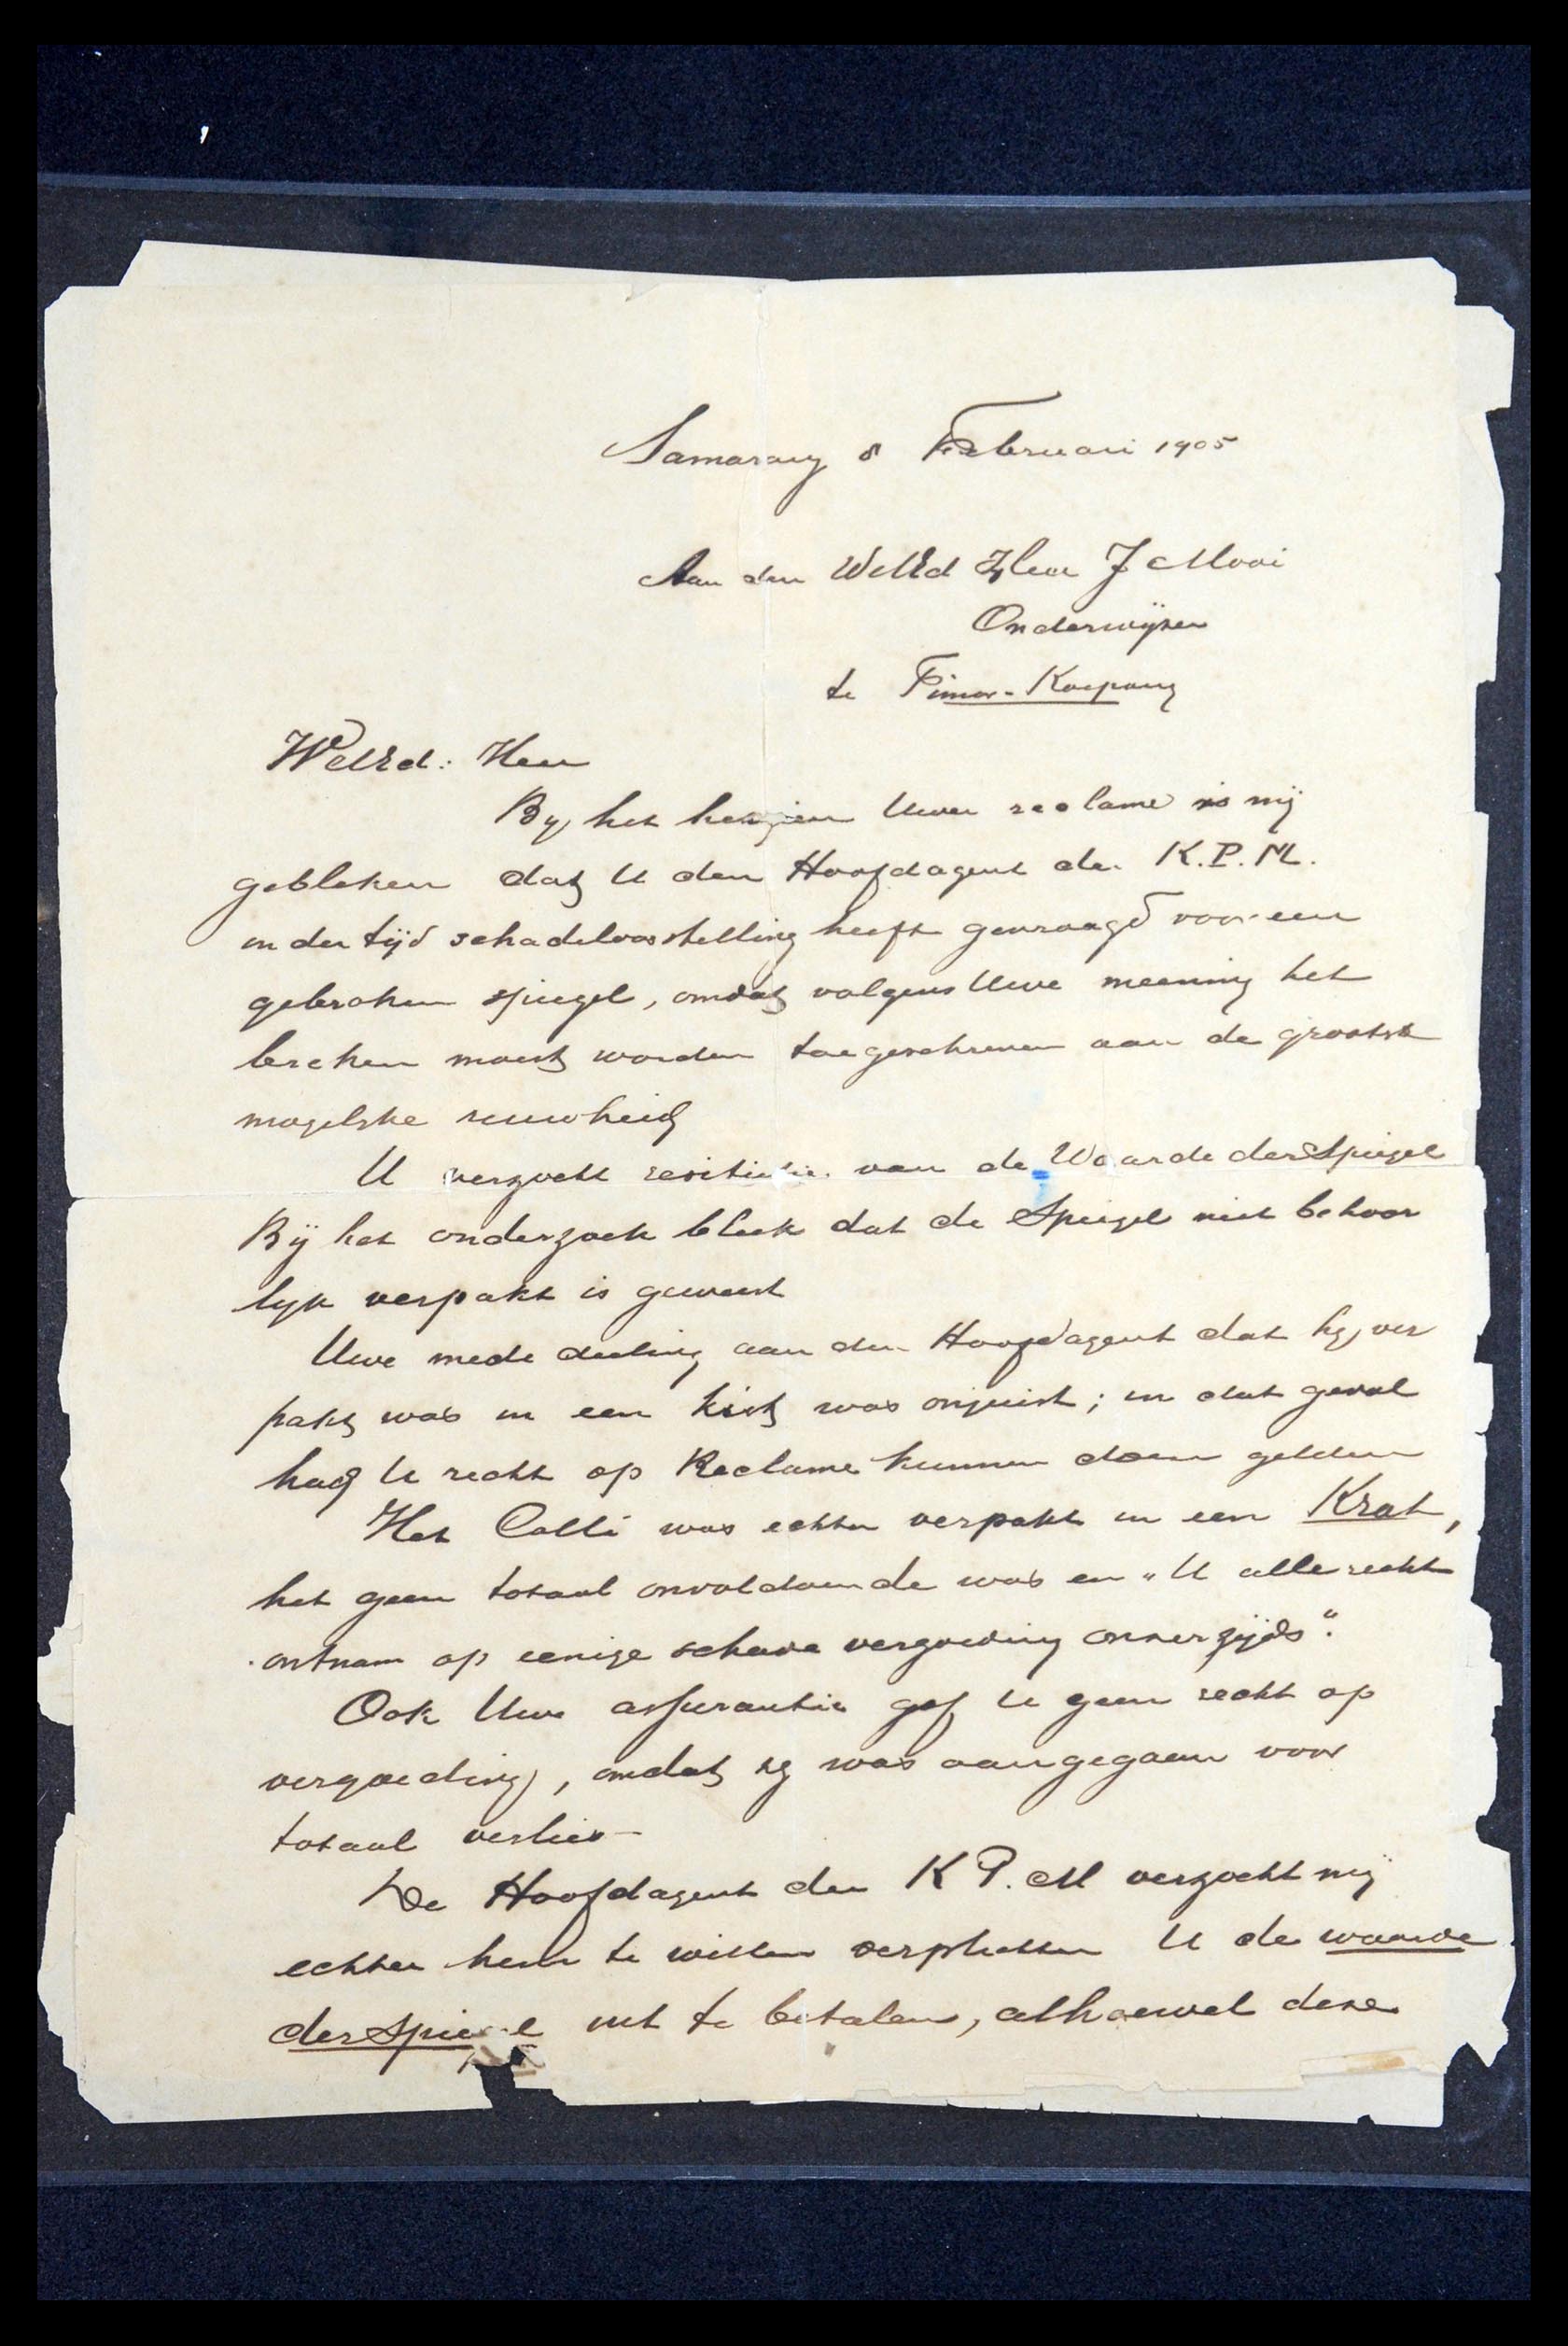 Samarang 8 Februari 1905
Aan den WelEd Heer J Mooi
Onderwijzer
te Timor-Koepang
WelEd: Heer
By het herzien Uwer reclame is mij
gebleken dat U den Hoofdagent der K.P.M.
in der tijd schadeloosstelling heeft gevraagd voor een
gebroken spiegel, omdat volgens Uwe meening het
breken moest worden toegeschreven aan de grootst
mogelske ruwheid
U verzocht restitutie van de Waarde der Spiegel
Bij het onderzoek bleek dat de Spiegel niet behoor
lyk verpakt is geweest
Uwe mededeeling aan den Hoofdagent dat hy ver
pakt was in een kist was onjuist; in dat geval
had U recht op Reclame kunnen doen gelden
Het Colli was echter verpakt in een Krat,
het geen totaal onvoldoende was en "U alle recht
ontnam op eenige schade vergoeding onzerzijds".
Ook Uwe assurantie gaf U geen recht op
vergoeding, omdat zy was aangegaan voor
totaal verlies-
De Hoofdagent der K P. M verzocht mij
echter hem te willen verplichten U de waarde
der Spiegel uit te betalen, alhoewel deze